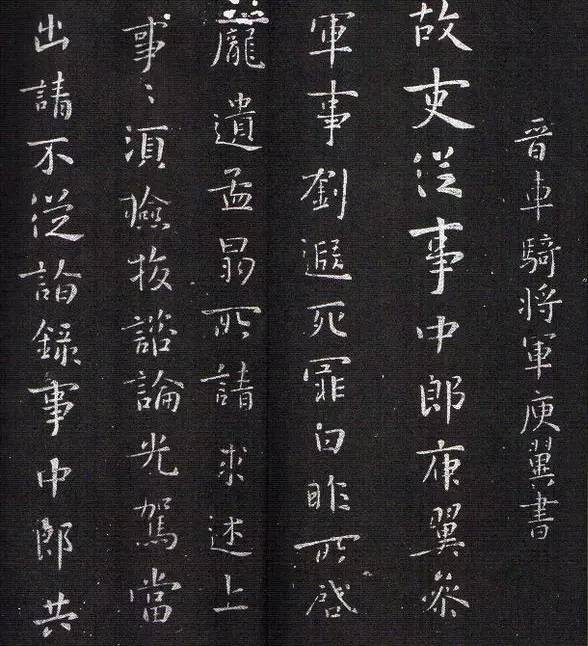 晉車騎將軍庾翼書
故吏從事中郎庾翼參
軍事劉遐死罪白昨所啓
龐遺孟昴所請求述上
事〻須檢校諮論光駕當
出請不從詣錄事中郎共